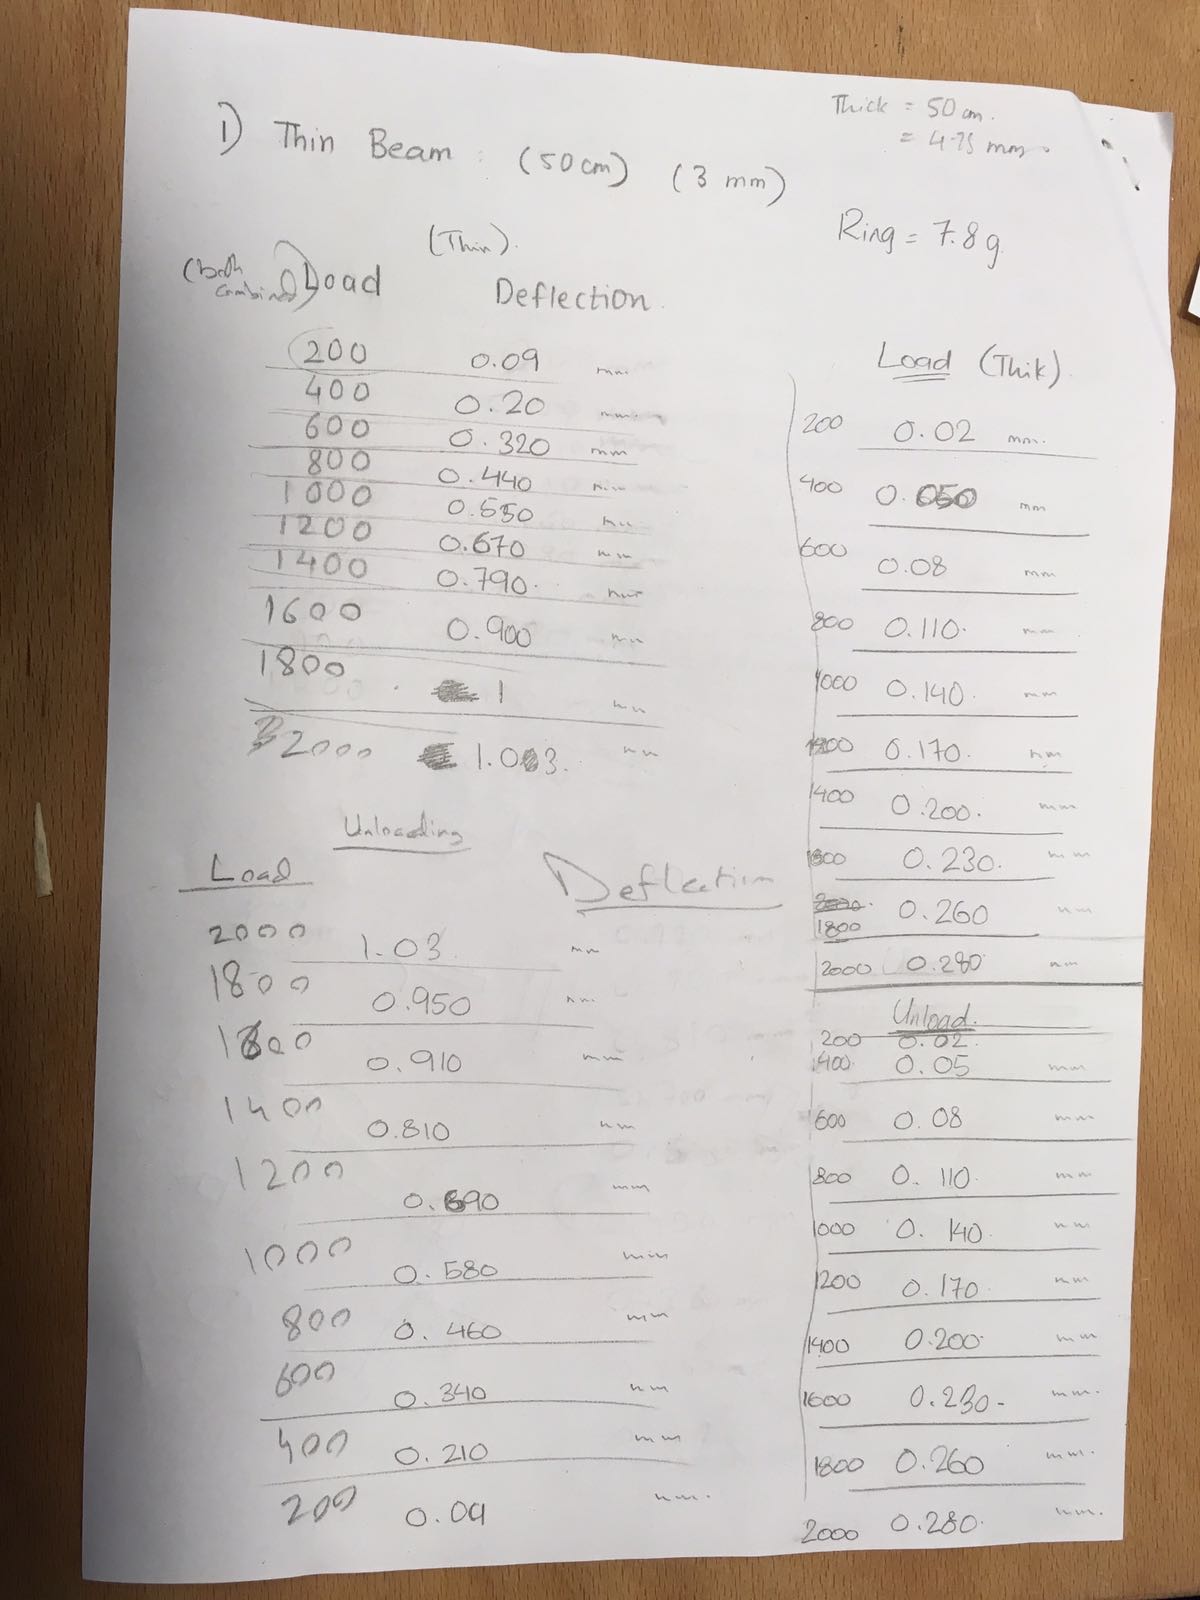 Thick = 50 cm.
= 4.75 mm.
1) Thin Beam : (50cm) (3 mm)
Ring = 7.8g.
(Thin).
(both combined) Load Deflection.
200 0.09 mm.
400 0.20 mm.
600 0.320 mm
800 0.440 mm
1000 0.550 mm
1200 0.670 mm
1400 0.790. mm
1600 0.900 mm
1800 1 mm
2000 mm
Unloading
Load Deflection
2000 1.03 mm
1800 0.950 mm.
1600 0.910 mm
1400 0.810 mm
1200 0.690 mm
1000 0.580 mm
800 0.460 mm
600 0.340 mm
400 0.210 mm
200 0.09 mm.
Load (Thik)
200 0.02 mm.
400 0.050 mm
600 0.08 mm
800 0.110. mm
1000 0.140. mm
1200 0.170. mm
1400 0.200. mm
1600 0.230. mm
1800 0.260 mm
2000 0.280 mm
Unload.
200 0.02
400. 0.05 mm
600 0.08 mm
800 0.110. mm
1000 0.140. mm
1200 0.170. mm
1400 0.200. mm
1600 0.230- mm.
1800 0.260 mm.
2000 0.280. mm.